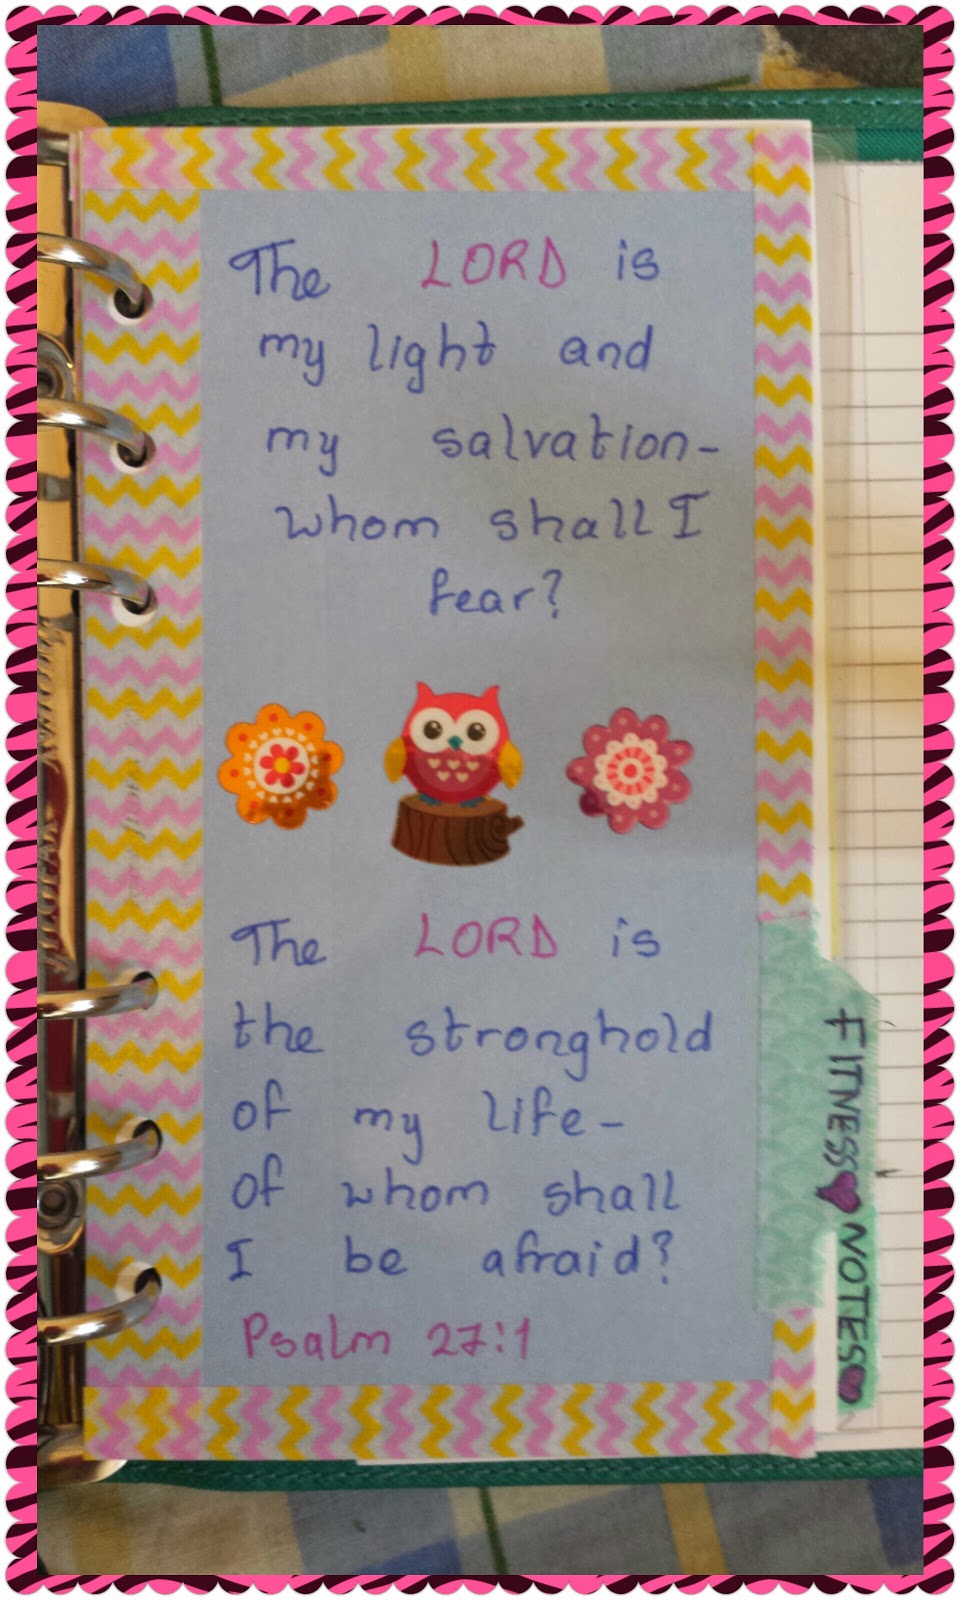 The LORD is
my light and
my salvation-
whom shall I
fear?
The LORD is
the stronghold
of my life-
of whom shall
I be afraid?
Psalm 27:1
FITNESS
NOTES